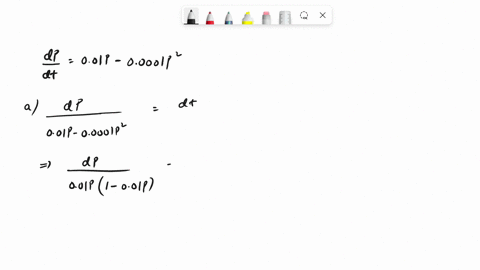 dP/dt = 0.01P - 0.0001P²
a) dP/(0.01P - 0.0001P²) = dt
⇒ dP/(0.01P(1 - 0.01P)) -